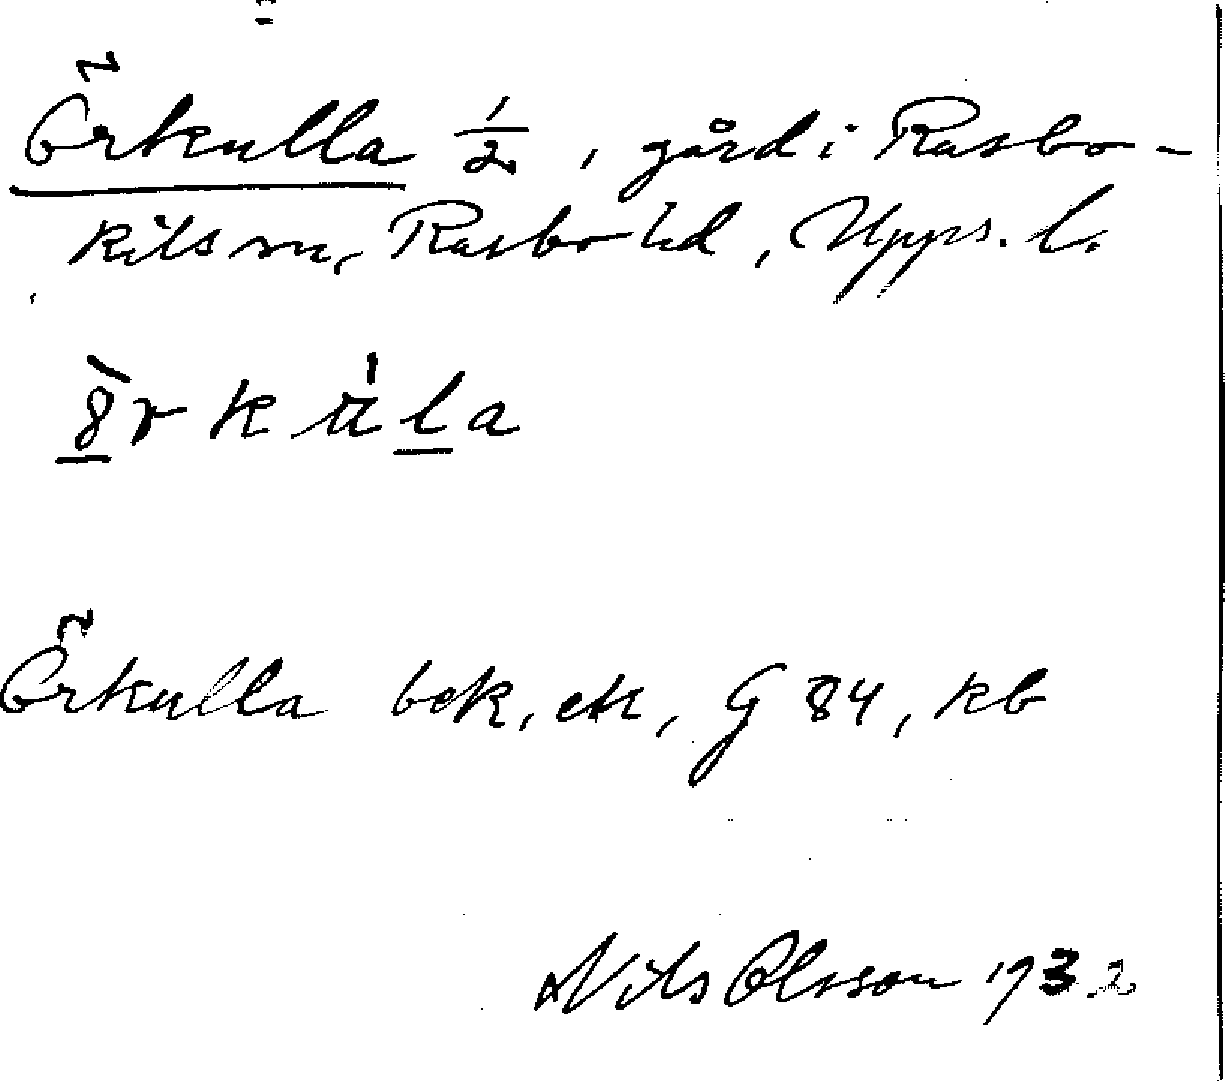 Örkulla 1/2, gård i Rasbo-
kils sn, Rasbo hd, Upps. l.
Örkulla bek, ek, G 84, kb
Nils Olsson 1932